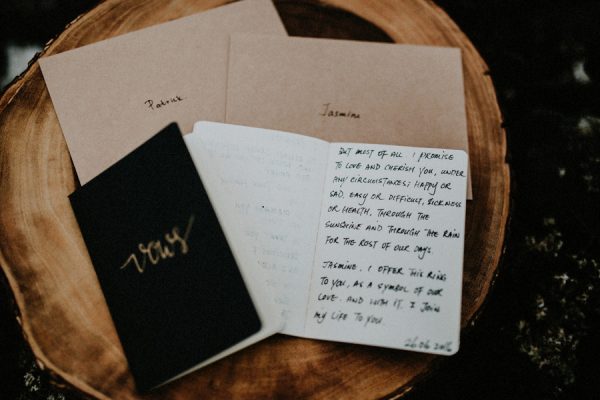 Patrick
Jasmine
vows
BUT MOST OF ALL, I PROMISE
TO LOVE AND CHERISH YOU, UNDER
ANY CIRCUMSTANCES; HAPPY OR
SAD, EASY OR DIFFICULT, SICKNESS
OR HEALTH, THROUGH THE
SUNSHINE AND THROUGH THE RAIN
FOR THE REST OF OUR DAYS.
JASMINE, I OFFER THIS RING
TO YOU, AS A SYMBOL OF OUR
LOVE. AND WITH IT, I JOIN
MY LIFE TO YOU.